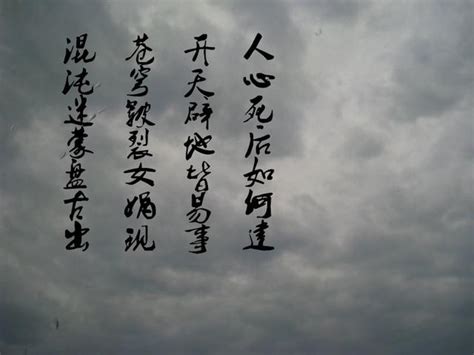 混沌迷蒙盘古出
苍穹皲裂女娲现
开天辟地皆易事
人心死后如何建